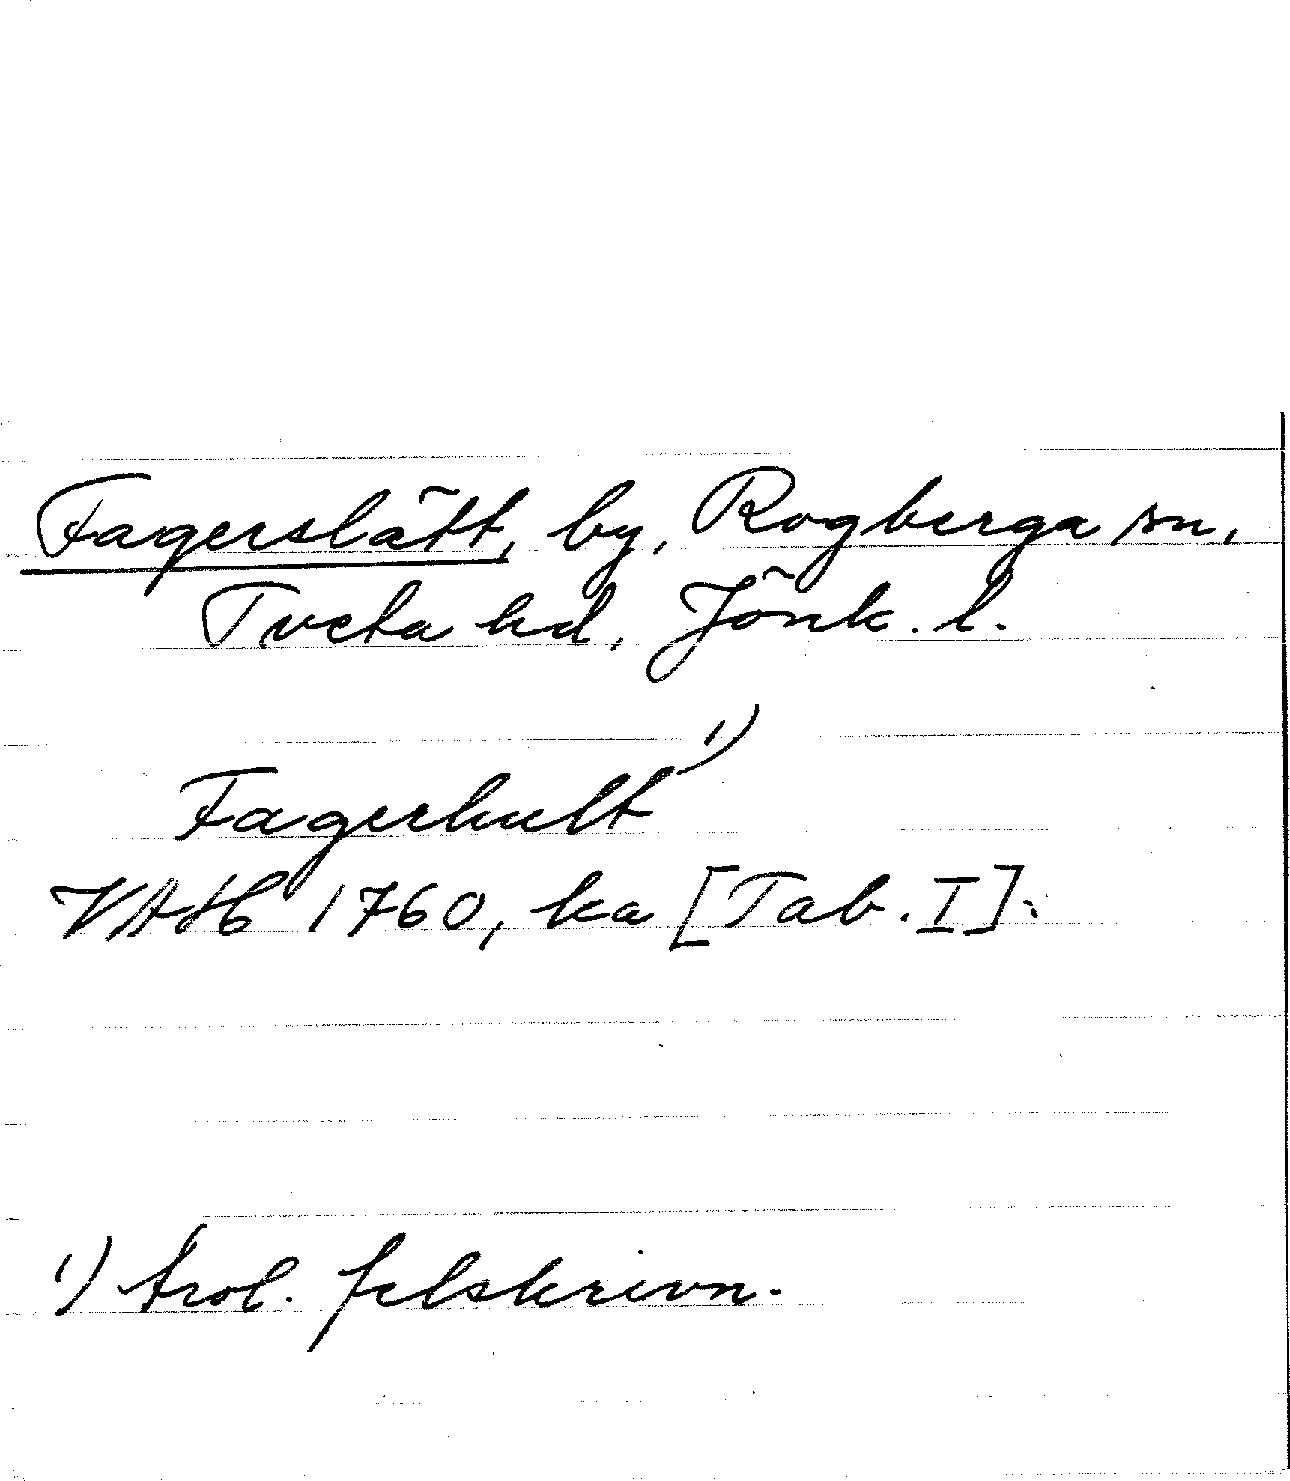 Fagerslätt, by, Rogberga sn,
Tveta hd, Jönk. l.
Fagerhult ¹)
VAH 1760, ka [Tab. I].
¹) trol. felskrivn.